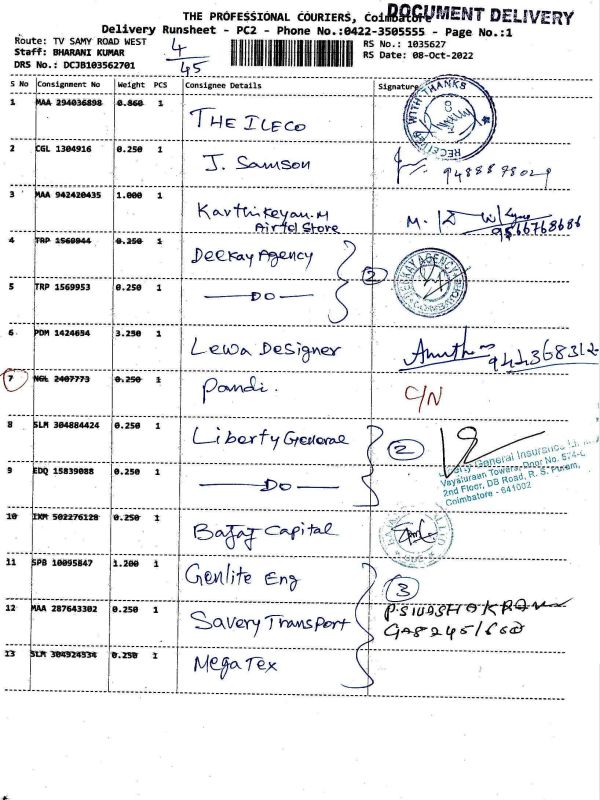 THE PROFESSIONAL COURIERS, Coimbatore
DOCUMENT DELIVERY
Delivery Runsheet - PC2 - Phone No.:0422-3505555 - Page No.:1
Route: TV SAMY ROAD WEST
RS No.: 1035627
Staff: BHARANI KUMAR
RS Date: 08-Oct-2022
DRS No.: DCJB103562701
4/45
S No Consignment No Weight PCS Consignee Details Signature
1 MAA 294036898 0.860 1 THE ILECO
RECEIVED WITH THANKS
2 CGL 1304916 0.250 1 J. Samson
3 MAA 942420435 1.000 1 Karthikeyan.M
Airtel Store
9566768686
4 TRP 1569944 0.250 1 Deekay Agency 2
DEEKAY AGENCY
5 TRP 1569953 0.250 1 —DO—
6 PDM 1424654 3.250 1 Lewa Designer
944368312
7 NGL 2407773 0.250 1 Pandi. C/N
8 SLM 304884424 0.250 1 Liberty General 2
Liberty General Insurance
Vayaturaan Towers, Door No. 574-C
2nd Floor, DB Road, R. S. Puram,
Coimbatore - 641002
9 EDQ 15839088 0.250 1 —DO—
10 IXM 502276128 0.250 1 Bajaj Capital
11 SPB 10095847 1.200 1 Genlite Eng 3
12 MAA 287643302 0.250 1 Savery Transport
13 SLM 304924934 0.250 1 Mega Tex